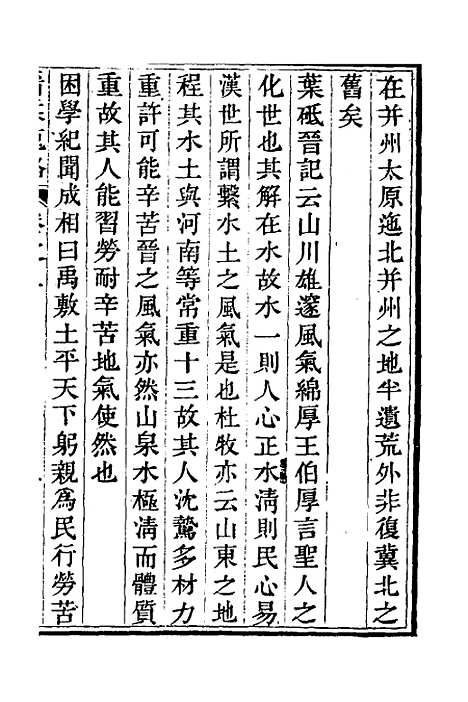 在并州太原迤北并州之地半遺荒外非復冀北之
舊矣
葉砥晉記云山川雄邃風氣綿厚王伯厚言聖人之
化世也其解在水故水一則人心正水淸則民心易
漢世所謂繫水土之風氣是也杜牧亦云山東之地
程其水土與河南等常重十三故其人沈鷙多材力
重許可能辛苦晉之風氣亦然山泉水極淸而體質
重故其人能習勞耐辛苦地氣使然也
困學紀聞成相曰禹敷土平天下躬親爲民行勞苦